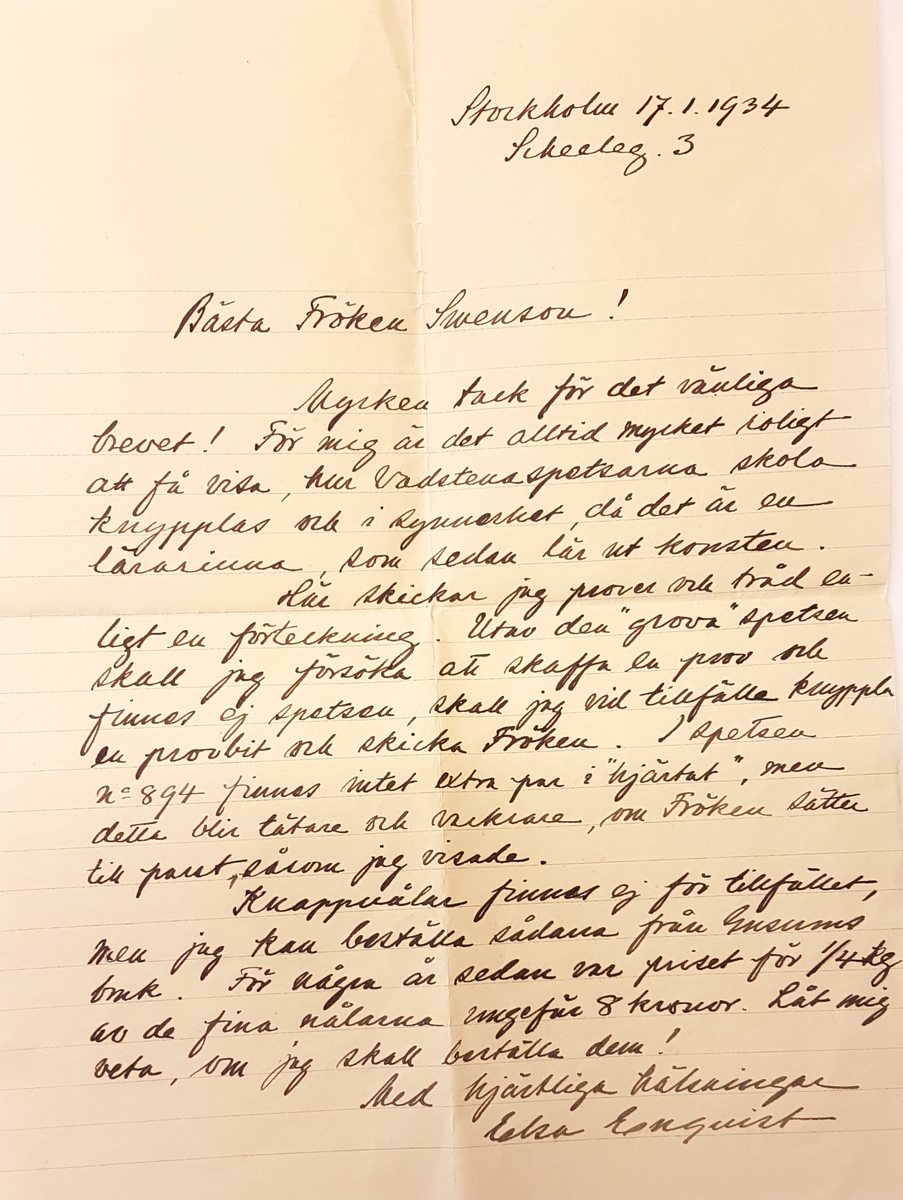 Stockholm 17.1.1934
Scheeleg. 3
Bästa Fröken Swenson!
Mycken tack för det vänliga
brevet! För mig är det alltid mycket roligt
att få visa, hur Vadstenaspetsarna skola
knypplas och i synnerhet, då det är en
lärarinna, som sedan lär ut konsten.
Här skickar jag prover och tråd en-
ligt en förteckning. Utav den "grova" spetsen
skall jag försöka att skaffa en prov och
finnes ej spetsen, skall jag vid tillfälle knyppla
en provbit och skicka Fröken. I spetsen
No 894 finnes intet extra par i "hjärtat", men
detta blir tätare och vackrare, om Fröken sätter
till paret, såsom jag visade.
Knappnålar finnas ej för tillfället,
men jag kan beställa sådana från Gusums
bruk. För några år sedan var priset för 1/4 kg
av de fina nålarna ungefär 8 kronor. Låt mig
veta, om jag skall beställa dem!
Med hjärtliga hälsningar
Elsa Enquist